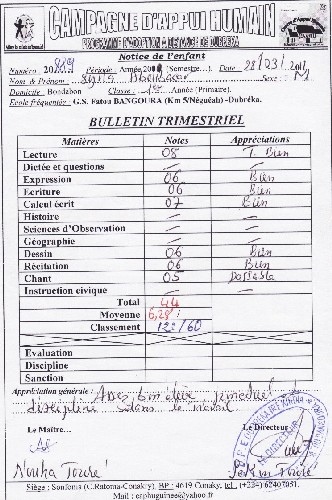 CAMPAGNE D'APPUI HUMAIN
PROGRAMME D'ADOPTION A L'ESPACE DE DUBRÉKA
Notice de l'enfant
Numéro : Période : Année (Semestre…). Date
Nom & Prénom : Aboubacar Sexe : M
Domicile : Bondabon Classe : 1ère Année (Primaire).
Ecole fréquentée : G.S. Fatou BANGOURA (Km 5/Néguéah) -Dubréka.
BULLETIN TRIMESTRIEL
Matières Notes Appréciations
Lecture 08 T. Bien
Dictée et questions
Expression 06 Bien
Ecriture 06 Bien
Calcul écrit 07 Bien
Histoire
Sciences d'Observation
Géographie
Dessin 06 Bien
Récitation 06 Bien
Chant 05 Passable
Instruction civique
Total 44
Moyenne 6,28
Classement 12e/60
Evaluation
Discipline
Sanction
Appréciation générale : Assez bon élève,
discipliné dans le travail
Le Maître… Le Directeur
Siège : Sonfonia (C.Ratoma-Conakry). BP : 4619 Conaky. Tel : (+224) 62407051.